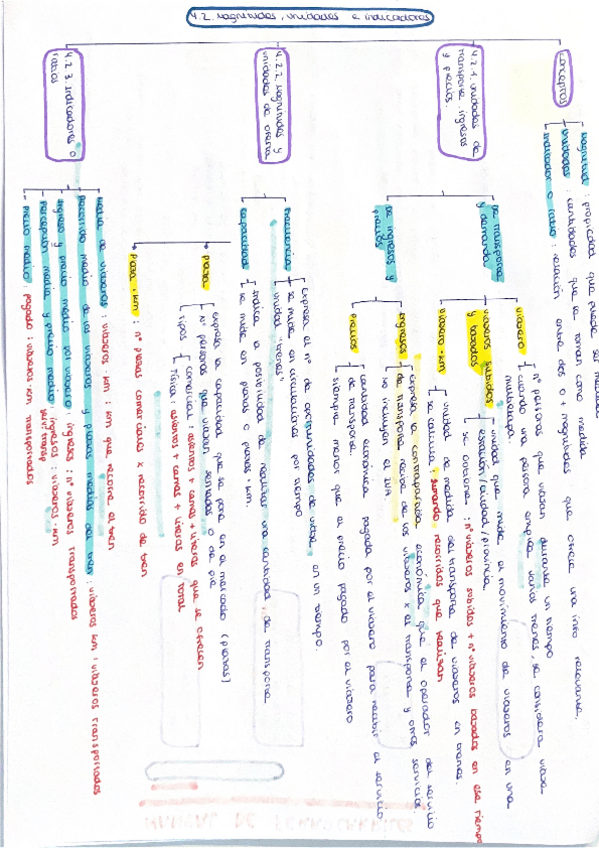 4.2. Magnitudes, unidades e indicadores
conceptos
Magnitud : propiedad que puede ser medida
unidades : cantidades que se toman como medida
indicador o ratio : relación entre dos o + magnitudes que ofrece una info relevante.
4.2.1. unidades de
transporte, ingresos
y precios.
de transporte
y demanda
viajero
nº personas que viajan durante un tiempo
cuando una persona emplea varios trenes, se considera viaje
multietapa.
viajeros subidos
y bajados
unidad que mide el movimiento de viajeros en una
estación/ciudad/provincia.
se obtiene : nº viajeros subidos + nº viajeros bajados en ese tiempo
viajero · km
unidad de medida del transporte de viajeros en trenes.
se calcula : sumando recorridos que realizan
de ingresos y
precios
ingresos
expresa la contrapartida económica que el operador del servicio
de transporte recibe de los viajeros x el transporte y otros servicios.
no incluyen el IVA
precios
cantidad económica pagada por el viajero para recibir el servicio
de transporte.
siempre menor que el precio pagado por el viajero
4.2.2. Magnitudes y
unidades de oferta
frecuencia
expresa el nº de oportunidades de viajar en un tiempo.
se mide en circulaciones por tiempo
unidad "trenes"
capacidad
indica la posibilidad de realizar una cantidad de transporte
se mide en plazas o plazas · km.
plaza
expresa la capacidad que se pone en el mercado (plazas)
nº personas que viajan sentadas o de pie
tipos
comercial : asientos + camas + literas que se ofrecen
técnica : asientos + camas + literas en total
Plaza · km : nº plazas comerciales x recorrido de tren
4.2.3. Indicadores o
ratios
media de viajeros : viajeros · km : km que recorre el tren
recorrido medio de los viajeros y plazas medias del tren : viajeros km : viajeros transportados
ingreso y precio medio por viajero : ingresos : nº viajeros transportados
percepción media y precio medio : ingresos : viajeros · km
precio medio : pagado : viajeros · km transportados
MANUAL DE FERROCARRILES